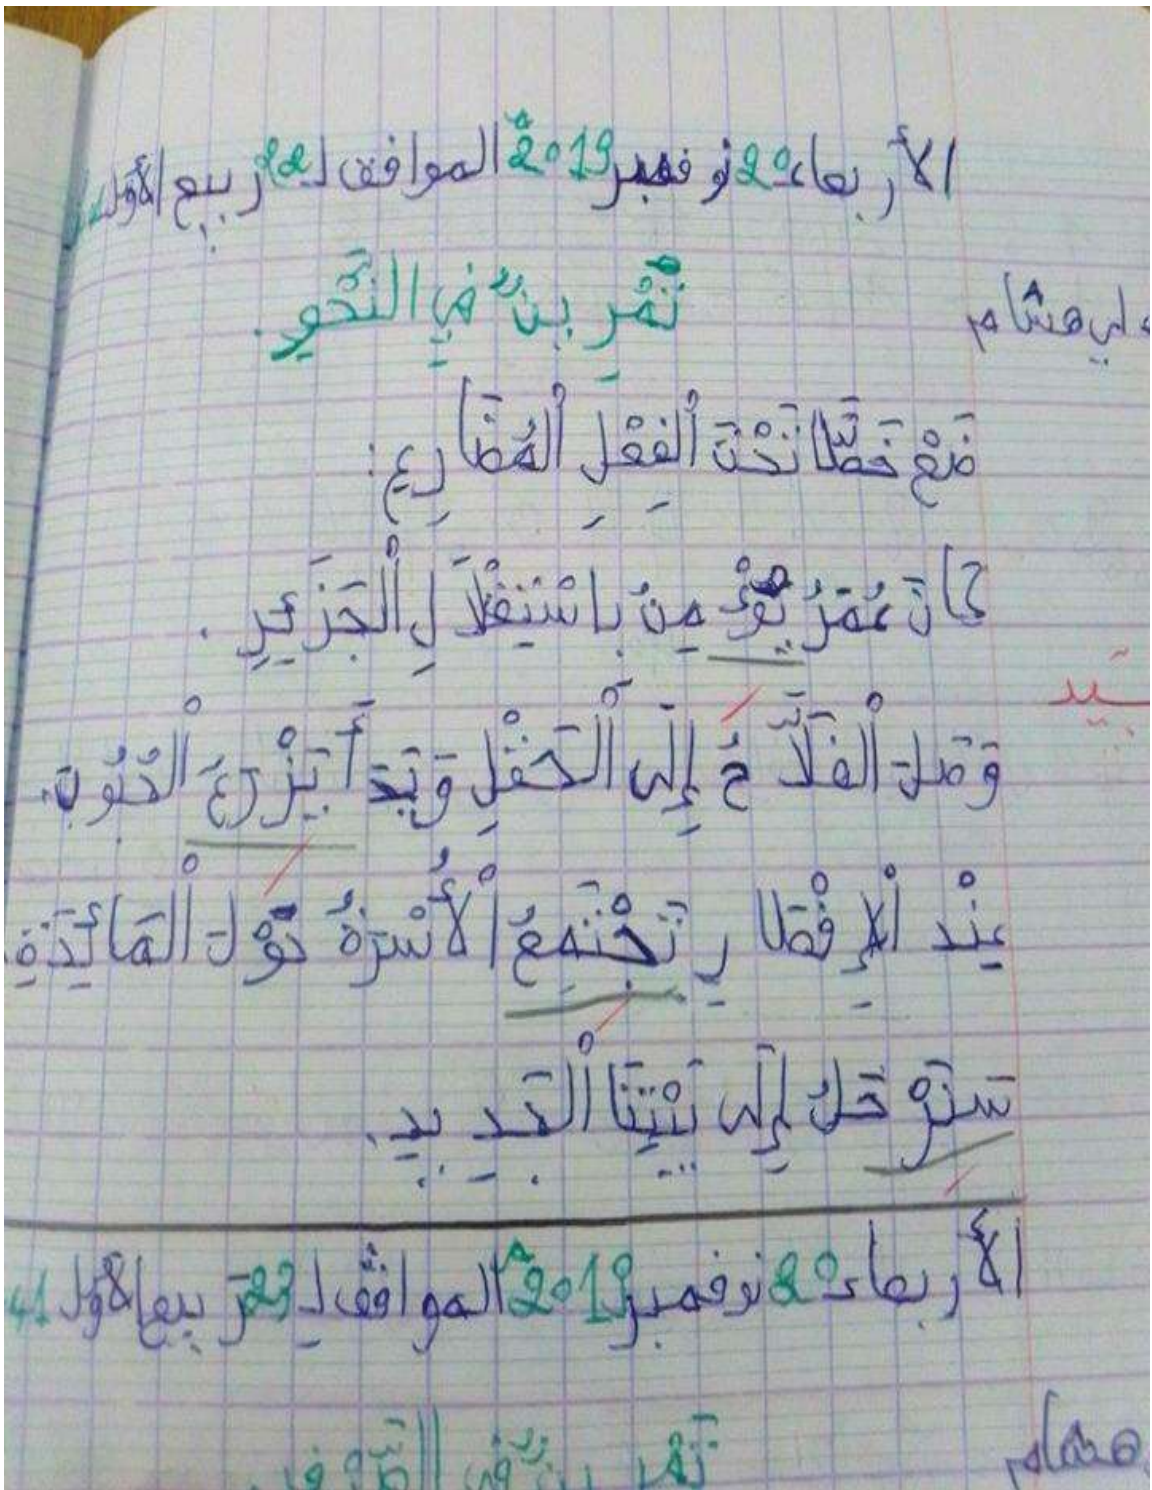 الأربعاء 20 نوفمبر 2019م الموافق لـ 22 ربيع الأول
تَمْرِينٌ فِي النَّحْوِ.
علي هشام
ضَعْ خَطًّا تَحْتَ ٱلْفِعْلِ ٱلْمُضَارِعِ:
كَانَ عُمَرُ يُؤْمِنُ بِاسْتِقْلَالِ ٱلْجَزَئِرِ.
وَصَلَ ٱلْفَلَّاحُ إِلَى ٱلْحَقْلِ وَبَدَأَ يَزْرَعُ ٱلْحُبُوبَ.
جيد
عِنْد ٱلْإِفْطَارِ تَجْتَمِعُ ٱلْأُسْرَةُ حَوْلَ ٱلْمَائِدَةِ.
سَنَرْحَلُ إِلَى بَيْتِنَا ٱلْجَدِيدِ.
الأربعاء 20 نوفمبر 2019م الموافق لـ 23 ربيع الأول 41
تَمْرِينٌ فِي الصَّرْفِ.
هشام